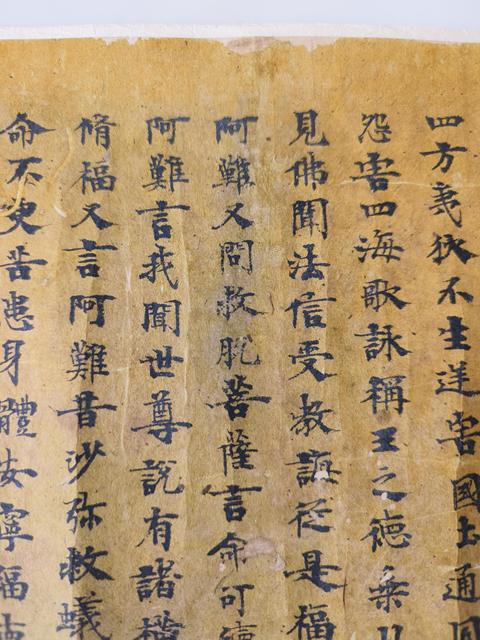 四方夷狄不生逆害國土通同
怨害四海歌詠稱王之德乘
見佛聞法信受教誨從是福
阿難又問救脫菩薩言命可
阿難言我聞世尊說有諸橫
脩福又言阿難昔沙弥救蟻
命不更苦患身體安寧福